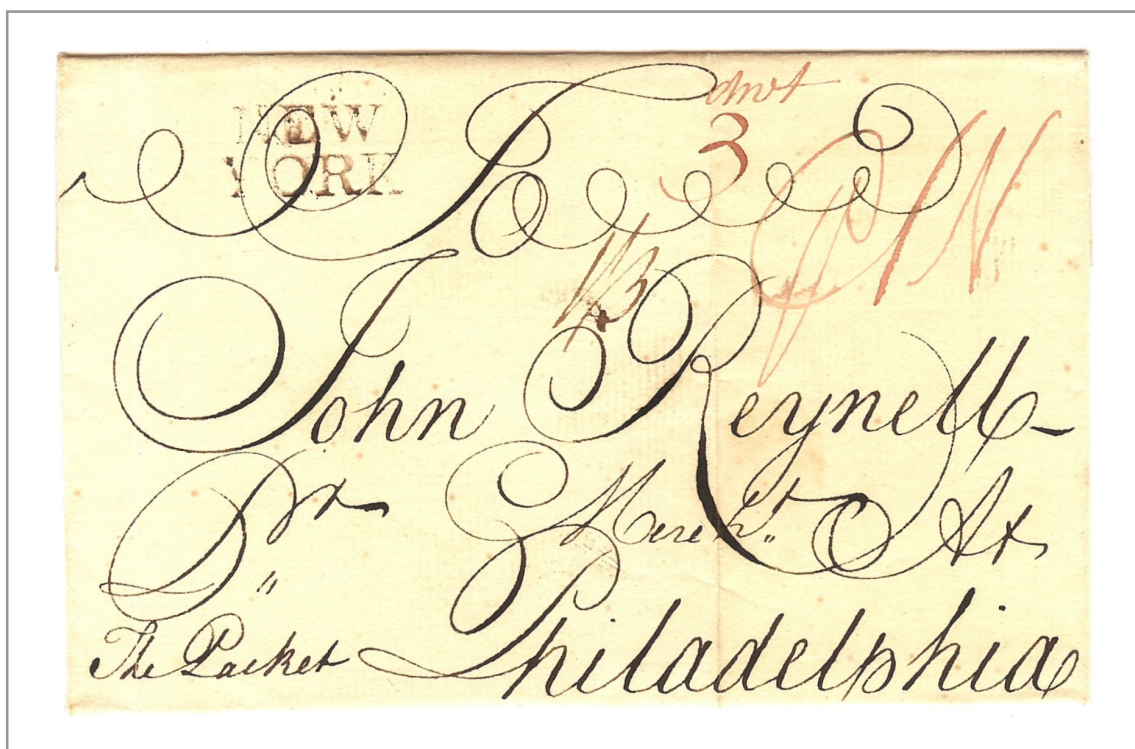 NEW
YORK
To
dwt
3
P N
1/3
John Reynell
Pr
Mercht. At
The Packet
Philadelphia